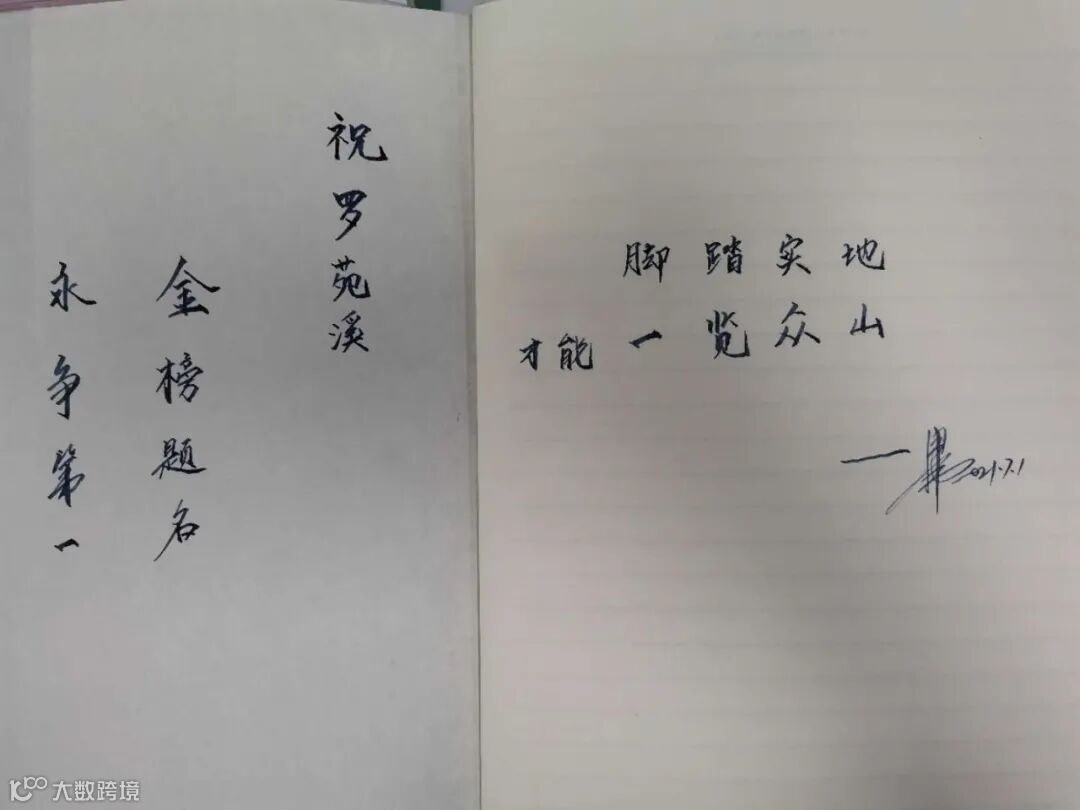 祝罗苑溪
金榜题名
永争第一
脚踏实地
才能一览众山
2021.7.1
大数跨境